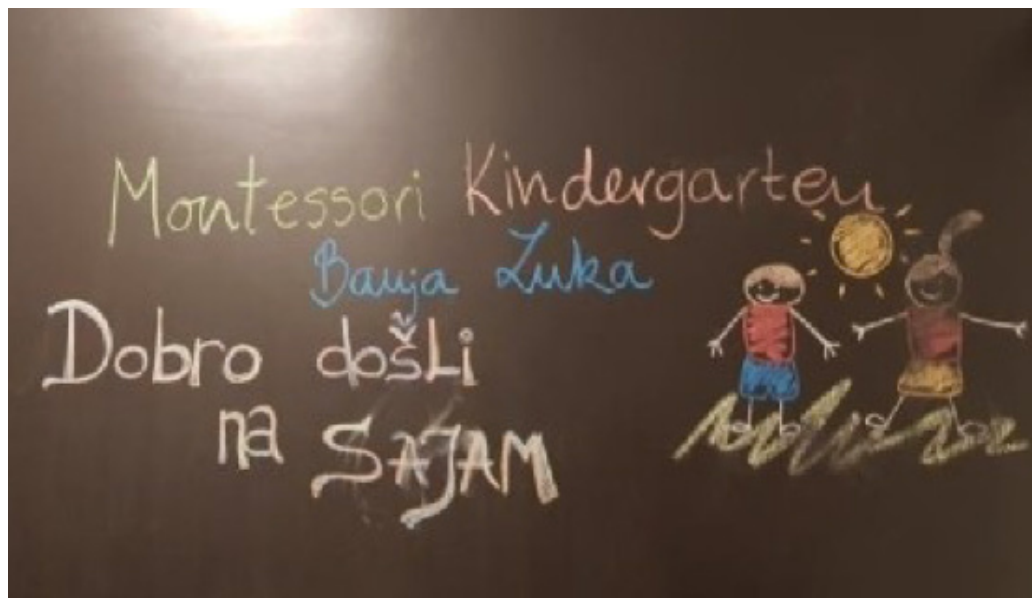 Montessori Kindergarten
Banja Luka
Dobro došli
na SAJAM